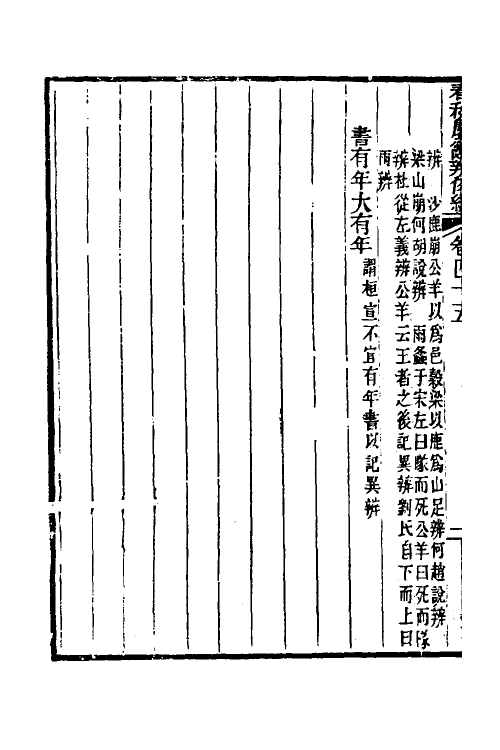 辨　沙鹿崩公羊以爲邑穀梁以鹿爲山足辨何趙說辨
梁山崩何胡說辨　雨螽于宋左曰隊而死公羊曰死而隊
辨杜從左義辨公羊云王者之後記異辨劉氏自下而上曰
雨辨
書有年大有年　謂桓宣不宜有年書以記異辨
卷四十五